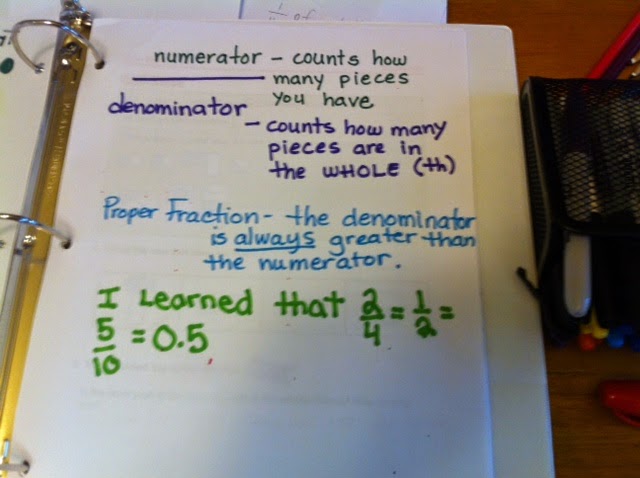 numerator - counts how
many pieces
you have
denominator
- counts how many
pieces are in
the WHOLE (th)
Proper Fraction - the denominator
is always greater than
the numerator.
I Learned that 2/4 = 1/2 =
5/10 = 0.5